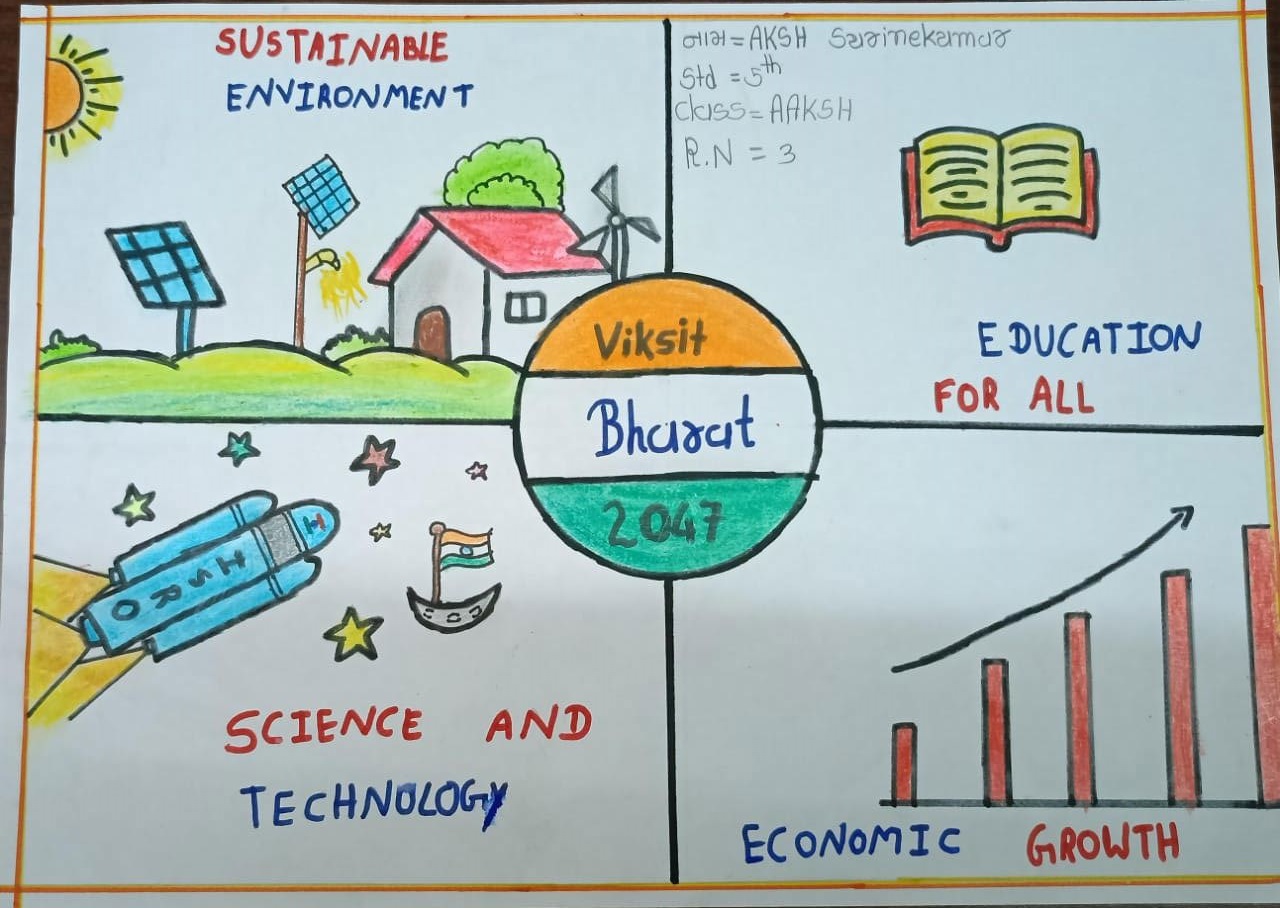 SUSTAINABLE
ENVIRONMENT
નામ = AKSH
Std = 5th
Class = AAKSH
R.N = 3
EDUCATION
FOR ALL
Viksit
Bharat
2047
ISRO
SCIENCE AND
TECHNOLOGY
ECONOMIC GROWTH